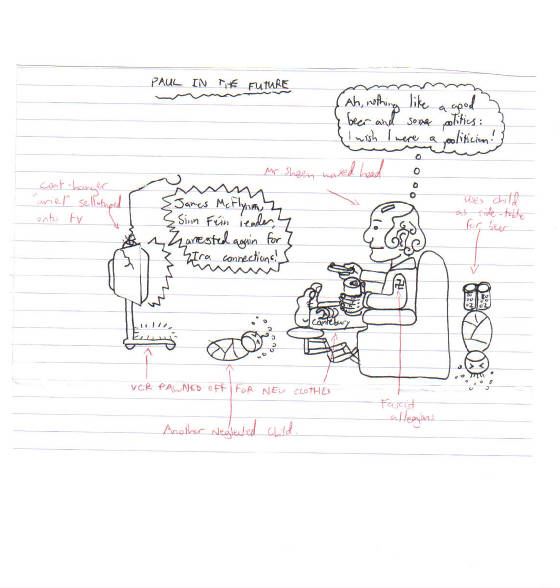 PAUL IN THE FUTURE
Ah, nothing like a good
beer and some politics:
I wish I were a politician!
Mr Sheen waxed head
Uses child
as side-table
for beer
coat-hanger
sellotaped
onto TV
James McFlynn,
Sinn Féin leader,
arrested again for
Ira connections!
Cantebury
VCR PAWNED OFF FOR NEW CLOTHES
Another Neglected child.
Fascist
allegians